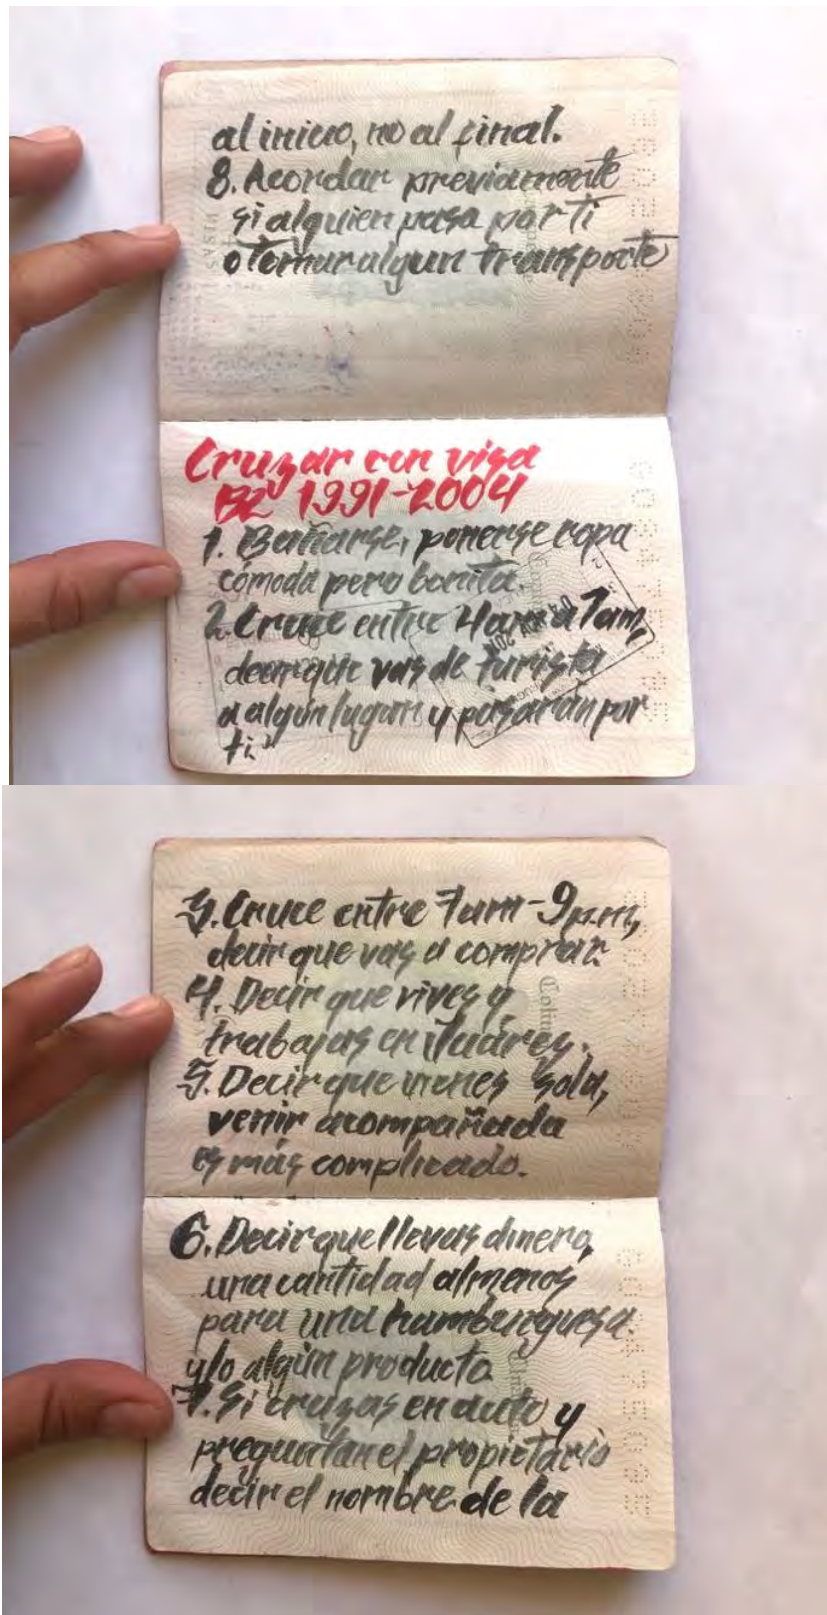 al inicio, no al final.
8. Acordar previamente
si alguien pasa por ti
o tomar algun transporte
Cruzar con visa
B2 1991-2004
1. Bañarse, ponerse ropa
cómoda pero bonita.
2. Cruce entre 4am a 7am,
decir que vas de turista
a algún lugar y pasarán por
ti."
3. Cruce entre 7am-9p.m,
decir que vas a comprar.
4. Decir que vives y
trabajas en Juárez.
5. Decir que vienes sola,
venir acompañada
es más complicado.
6. Decir que llevas dinero,
una cantidad almenos
para una hamburguesa
y/o algún producto
7. Si cruzas en auto y
preguntan el propietario
decir el nombre de la